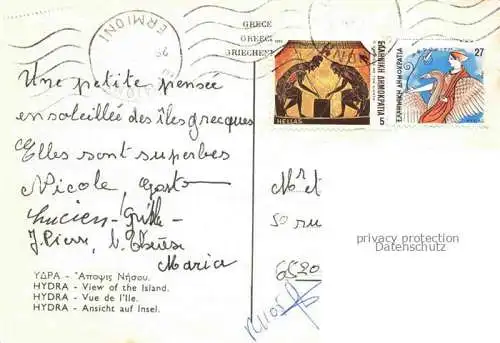 ERMIONI
GRECE
GREECE
GRIECHENL
HELLAS
ΕΛΛΗΝΙΚΗ ΔΗΜΟΚΡΑΤΙΑ 5
27
ΕΛΛΗΝΙΚΗ ΔΗΜΟΚΡΑΤΙΑ
Une petite pensée
ensoleillée des îles grecques
Elles sont superbes
Nicole,
Lucien -
J. Pierre,
Maria
ΥΔΡΑ - Ἄποψις Νήσου.
HYDRA - View of the Island.
HYDRA - Vue de l'Ile.
HYDRA - Ansicht auf Insel.
Mr et
50 ru
privacy protection
Datenschutz
6520